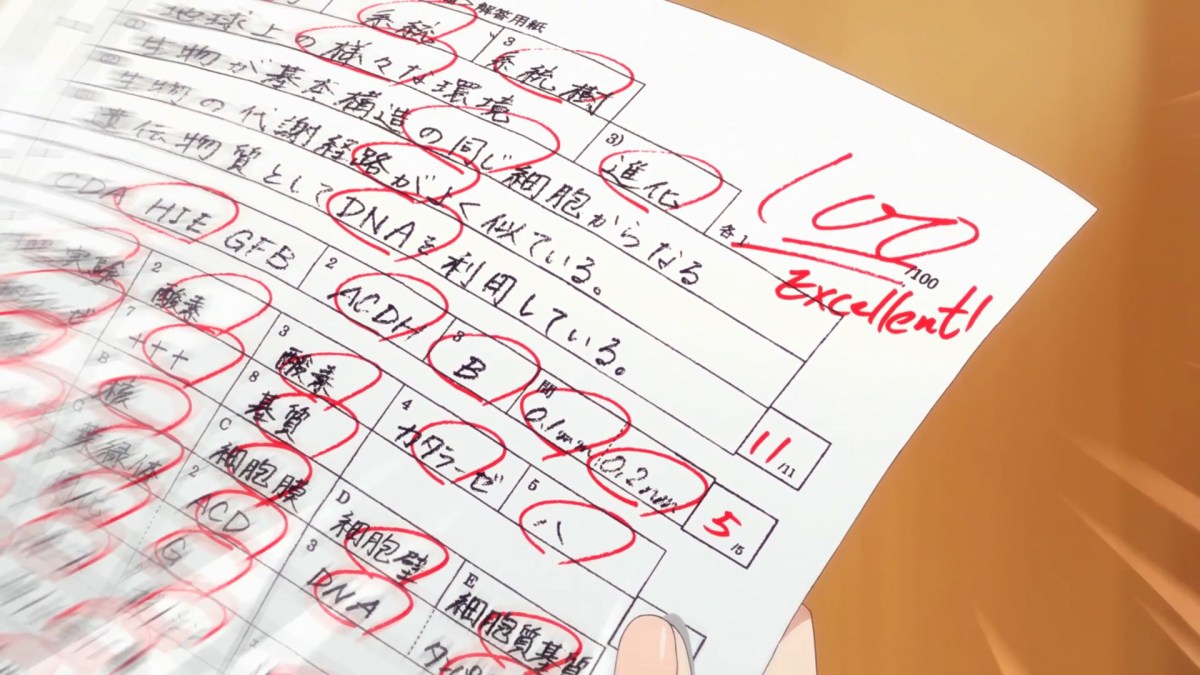 解答用紙
系統
3 系統樹
地球上の様々な環境
3) 進化
生物が基本構造の同じ細胞からなる
生物の代謝経路がよく似ている。
遺伝物質としてDNAを利用している。
各1
100 /100
Excellent!
11 /11
CDA HIE GFB
2 ACDH
3 B
問 0.1mm 0.2nm
5 /5
実験
2 酸素
3 酸素
4 カタラーゼ
5 ハ
7 +++
8 基質
B 核
C 細胞膜
D 細胞壁
E 細胞質基質
葉緑体
2 ACD
3 DNA
G